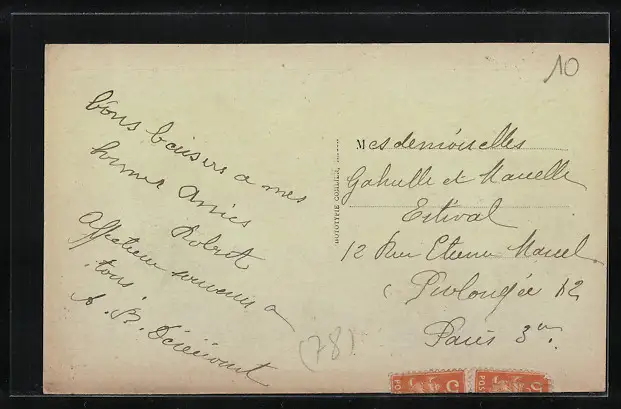 10
Bons baisers a mes
bonnes amies
Robert
Affectueux souvenirs a
tous
A. B.
PHOTOTYPIE CORDIER,
Mesdemoiselles
et Marcelle
Estival
12 Rue Etienne Marcel
Prolongée 12
Paris 3e
(78)
POS
5
POS